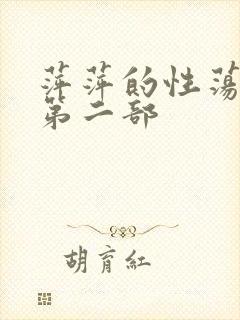 萍萍的性荡
第二部
胡育红